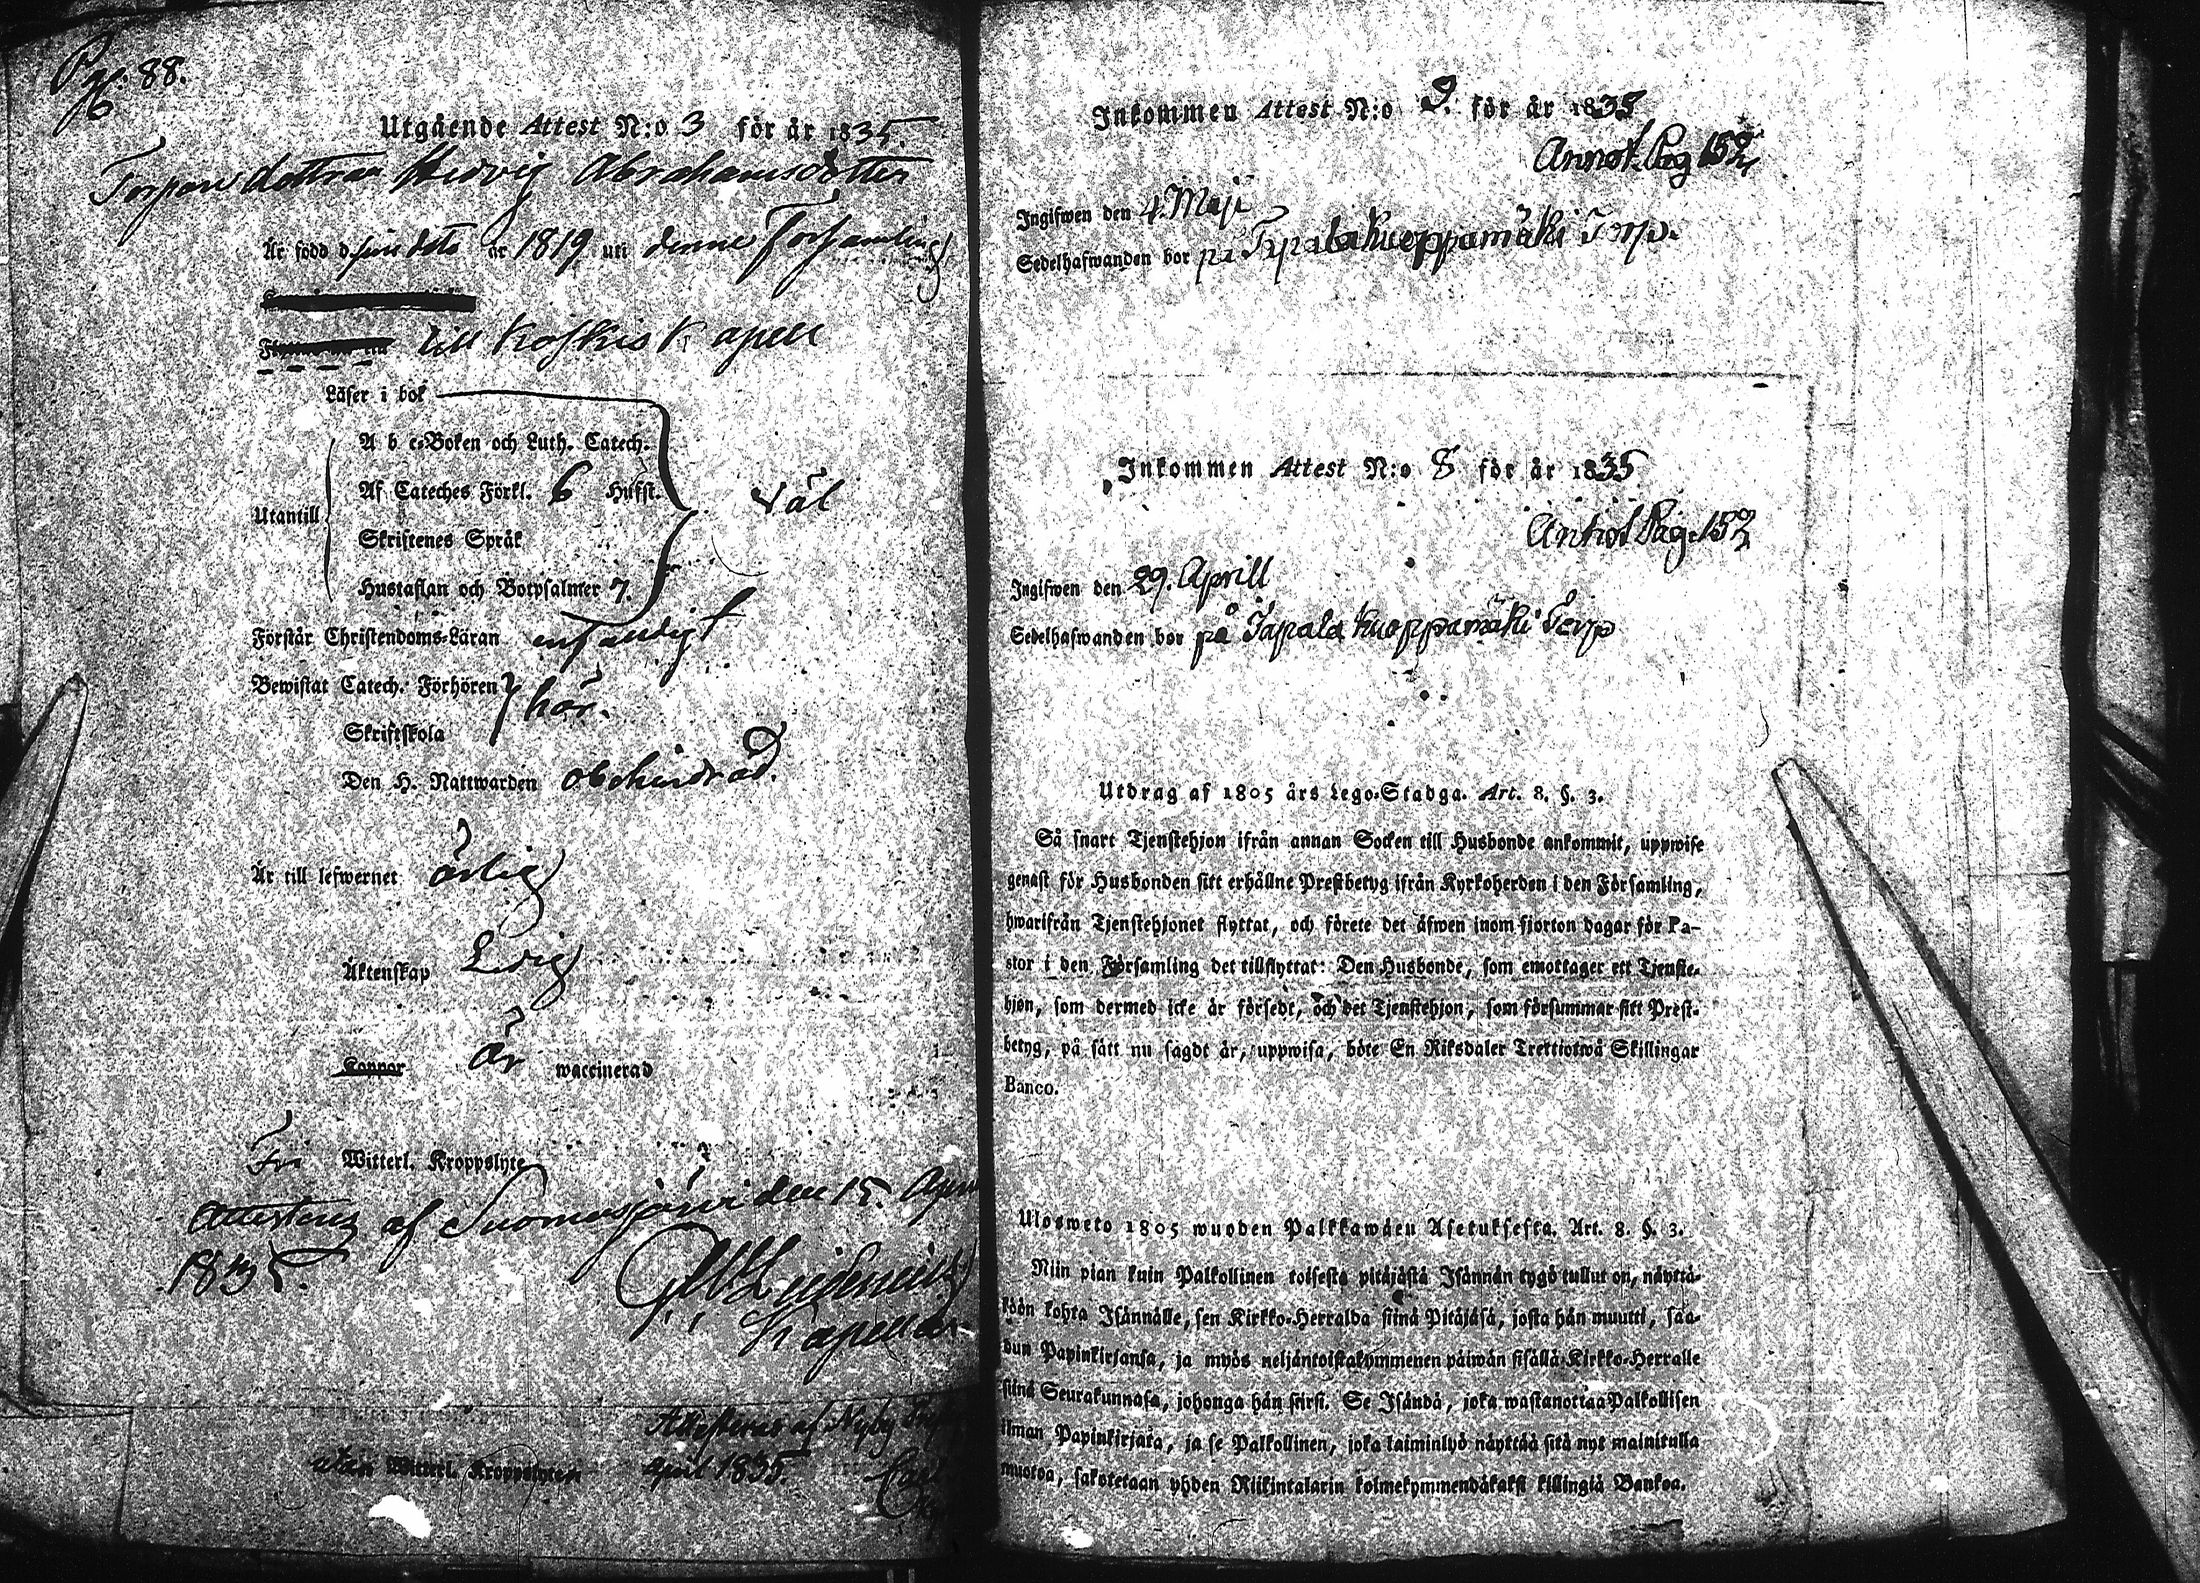 Pag. 88.
Utgående Attest N:o 3 för år 1835.
Torpare dottren Hedvig Abrahamsdotter
Är född d. år 1819 uti denne Församling
till Koskis Kapell
Läser i bok
A b c-Boken och Luth. Catech.
Af Cateches Förkl. 6 Hufst.
väl
Utantill
Skriftenes Språk
Hustaflan och Botpsalmer 7.
Förstår Christendoms-Läran enfaldigt
Bewistat Catech. Förhören
här.
Skriftskola
Den H. Nattwarden obehindrad.
Är till lefwernet ärlig
Äktenskap Ledig
Koppor är waccinerad
Fri Witterl. Kroppslyte
Attesteras af Suomusjärvi den 15. April
1835.
Kapellan
Attesteras af Nyby
Witterl. Kroppslyten April 1835.
Inkommen Attest N:o 9. för år 1835
Annot. Pag 152
Ingifwen den 4. Maji
Sedelhafwanden bor på Tapala kuoppamäki Torp.
Inkommen Attest N:o 8 för år 1835
Annot Pag. 152
Ingifwen den 29. Aprill
Sedelhafwanden bor på Tapala kuoppamäki Torp
Utdrag af 1805 års Lego-Stadga. Art. 8. §. 3.
Så snart Tjenstehjon ifrån annan Socken till Husbonde ankommit, uppwise
genast för Husbonden sitt erhållne Prestbetyg ifrån Kyrkoherden i den Församling,
hwarifrån Tjenstehjonet flyttat, och förete det äfwen inom fjorton dagar för Pa-
stor i den Församling det tillflyttat: Den Husbonde, som emottager ett Tjenste-
hjon, som dermed icke är försedt, och det Tjenstehjon, som försummar sitt Prest-
betyg, på sätt nu sagdt är, uppwisa, böte En Riksdaler Trettiotwå Skillingar
Banco.
Ulosweto 1805 wuoden Palkkawäen Asetuksesta. Art. 8. §. 3.
Niin pian kuin Palkollinen toisesta pitäjästä Isännän tygö tullut on, näyttä-
köön kohta Isännälle, sen Kirkko-Herralda siinä Pitäjäsä, josta hän muutti, saa-
dun Papinkirjansa, ja myös neljäntoistakymmenen päiwän sisällä Kirkko-Herralle
siinä Seurakunnasa, johonga hän siirsi. Se Isändä, joka wastanottaa Palkollisen
ilman Papinkirjata, ja se Palkollinen, joka laiminlyö näyttää sitä nyt mainitulla
muotoa, sakotetaan yhden Riikintalarin kolmekymmendäkaksi killingiä Bankoa.